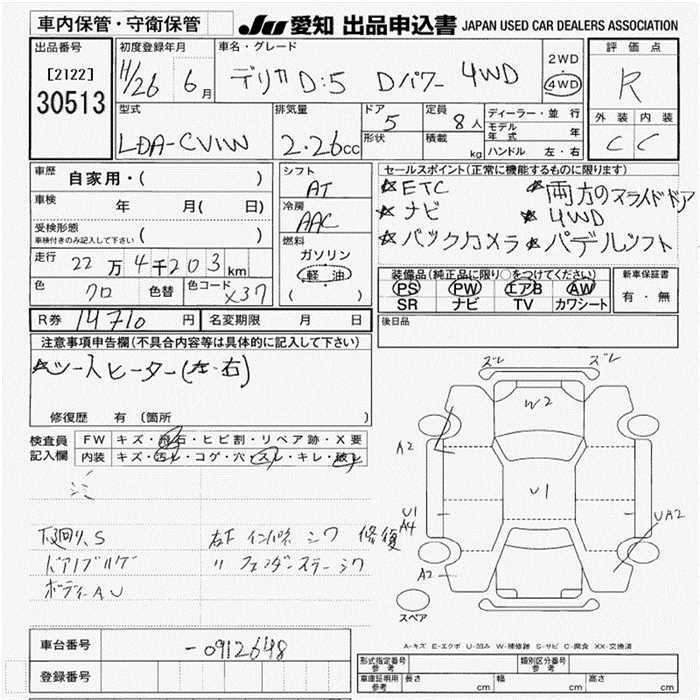 車内保管・守衛保管
JU 愛知 出品申込書 JAPAN USED CAR DEALERS ASSOCIATION
出品番号
[2122]
30513
初度登録年月
H/26 6月
車名・グレード
デリカ D:5 Dパワー 4WD
2WD
・
4WD
評価点
R
外装 内装
C C
型式
LDA-CV1W
排気量
2.26cc
ドア
5
形状
定員
8人
積載
kg
ディーラー・並行
モデル年式 年
ハンドル 左・右
車歴 自家用・( )
車検 年 月( 日)
受検形態
車検付きのみ記入して下さい ( )
走行 22万4千203km
色 クロ 色替 色コード X37
シフト
AT
冷房
AAC
燃料
ガソリン
軽油
( )
セールスポイント(正常に機能するものに限ります)
☆ETC ☆両方のスライドドア
☆ナビ ☆4WD
☆バックカメラ ☆パドルシフト
装備品(純正品に限り○をつけてください)
PS PW エアB AW
SR ナビ TV カワシート
新車保証書
有・無
R券 14710円 名変期限 月 日
後日品
注意事項申告欄(不具合内容等は具体的に記入して下さい)
☆シートヒーター(左・右)
修復歴 有(箇所 )
検査員記入欄
FW キズ・飛石・ヒビ割・リペア跡・X要
内装 キズ・汚れ・コゲ・穴・スレ・キレ・破れ
下廻り、S 右F インパネ シワ 修復
ドアノブハゲ 〃 フェンダーステー シワ
ボディーAU
ズレ ズレ
W2
A2
U1
U1
A4
UA2
A2
スペア
A-キズ E-エクボ U-凹み W-補修跡 S-サビ C-腐食 XX-交換済
車台番号 -0912648
登録番号
形式指定番号 参考 類別区分番号 参考
車庫証明用 参考 長さ cm 幅 cm 高さ cm